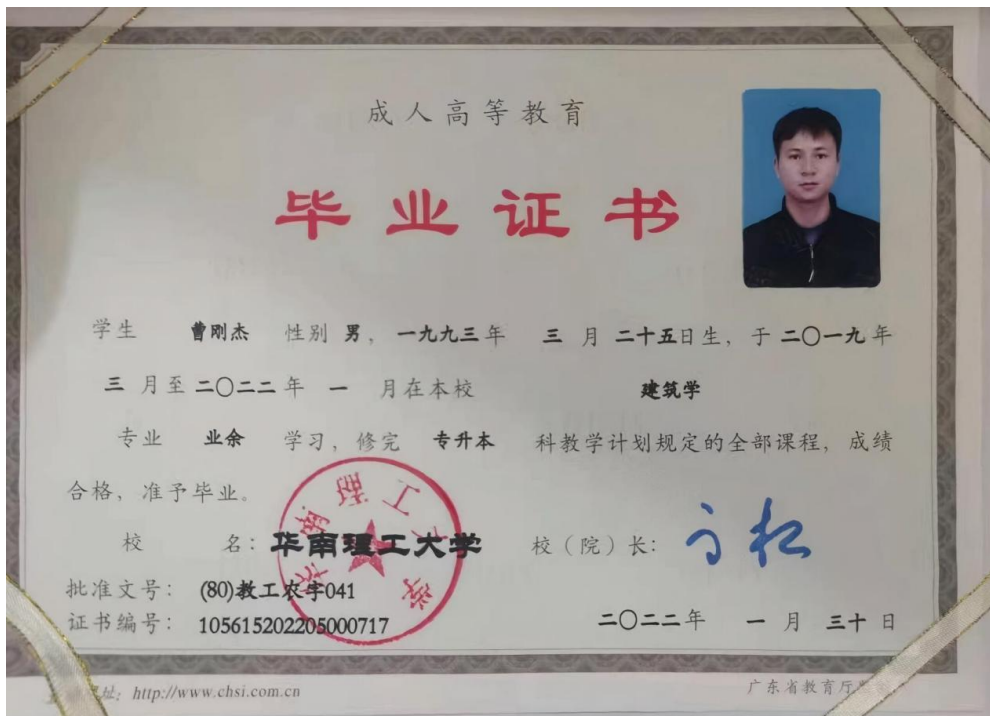 成人高等教育
毕业证书
学生 曹刚杰 性别 男，一九九三年 三 月 二十五日生，于 二〇一九年
三 月至 二〇二二年 一 月在本校 建筑学
专业 业余 学习，修完 专升本 科教学计划规定的全部课程，成绩
合格，准予毕业。
校 名：华南理工大学 校（院）长：
批准文号：(80)教工农字041
证书编号：105615202205000717 二〇二二年 一 月 三十 日
华南理工大学
址：http://www.chsi.com.cn
广东省教育厅